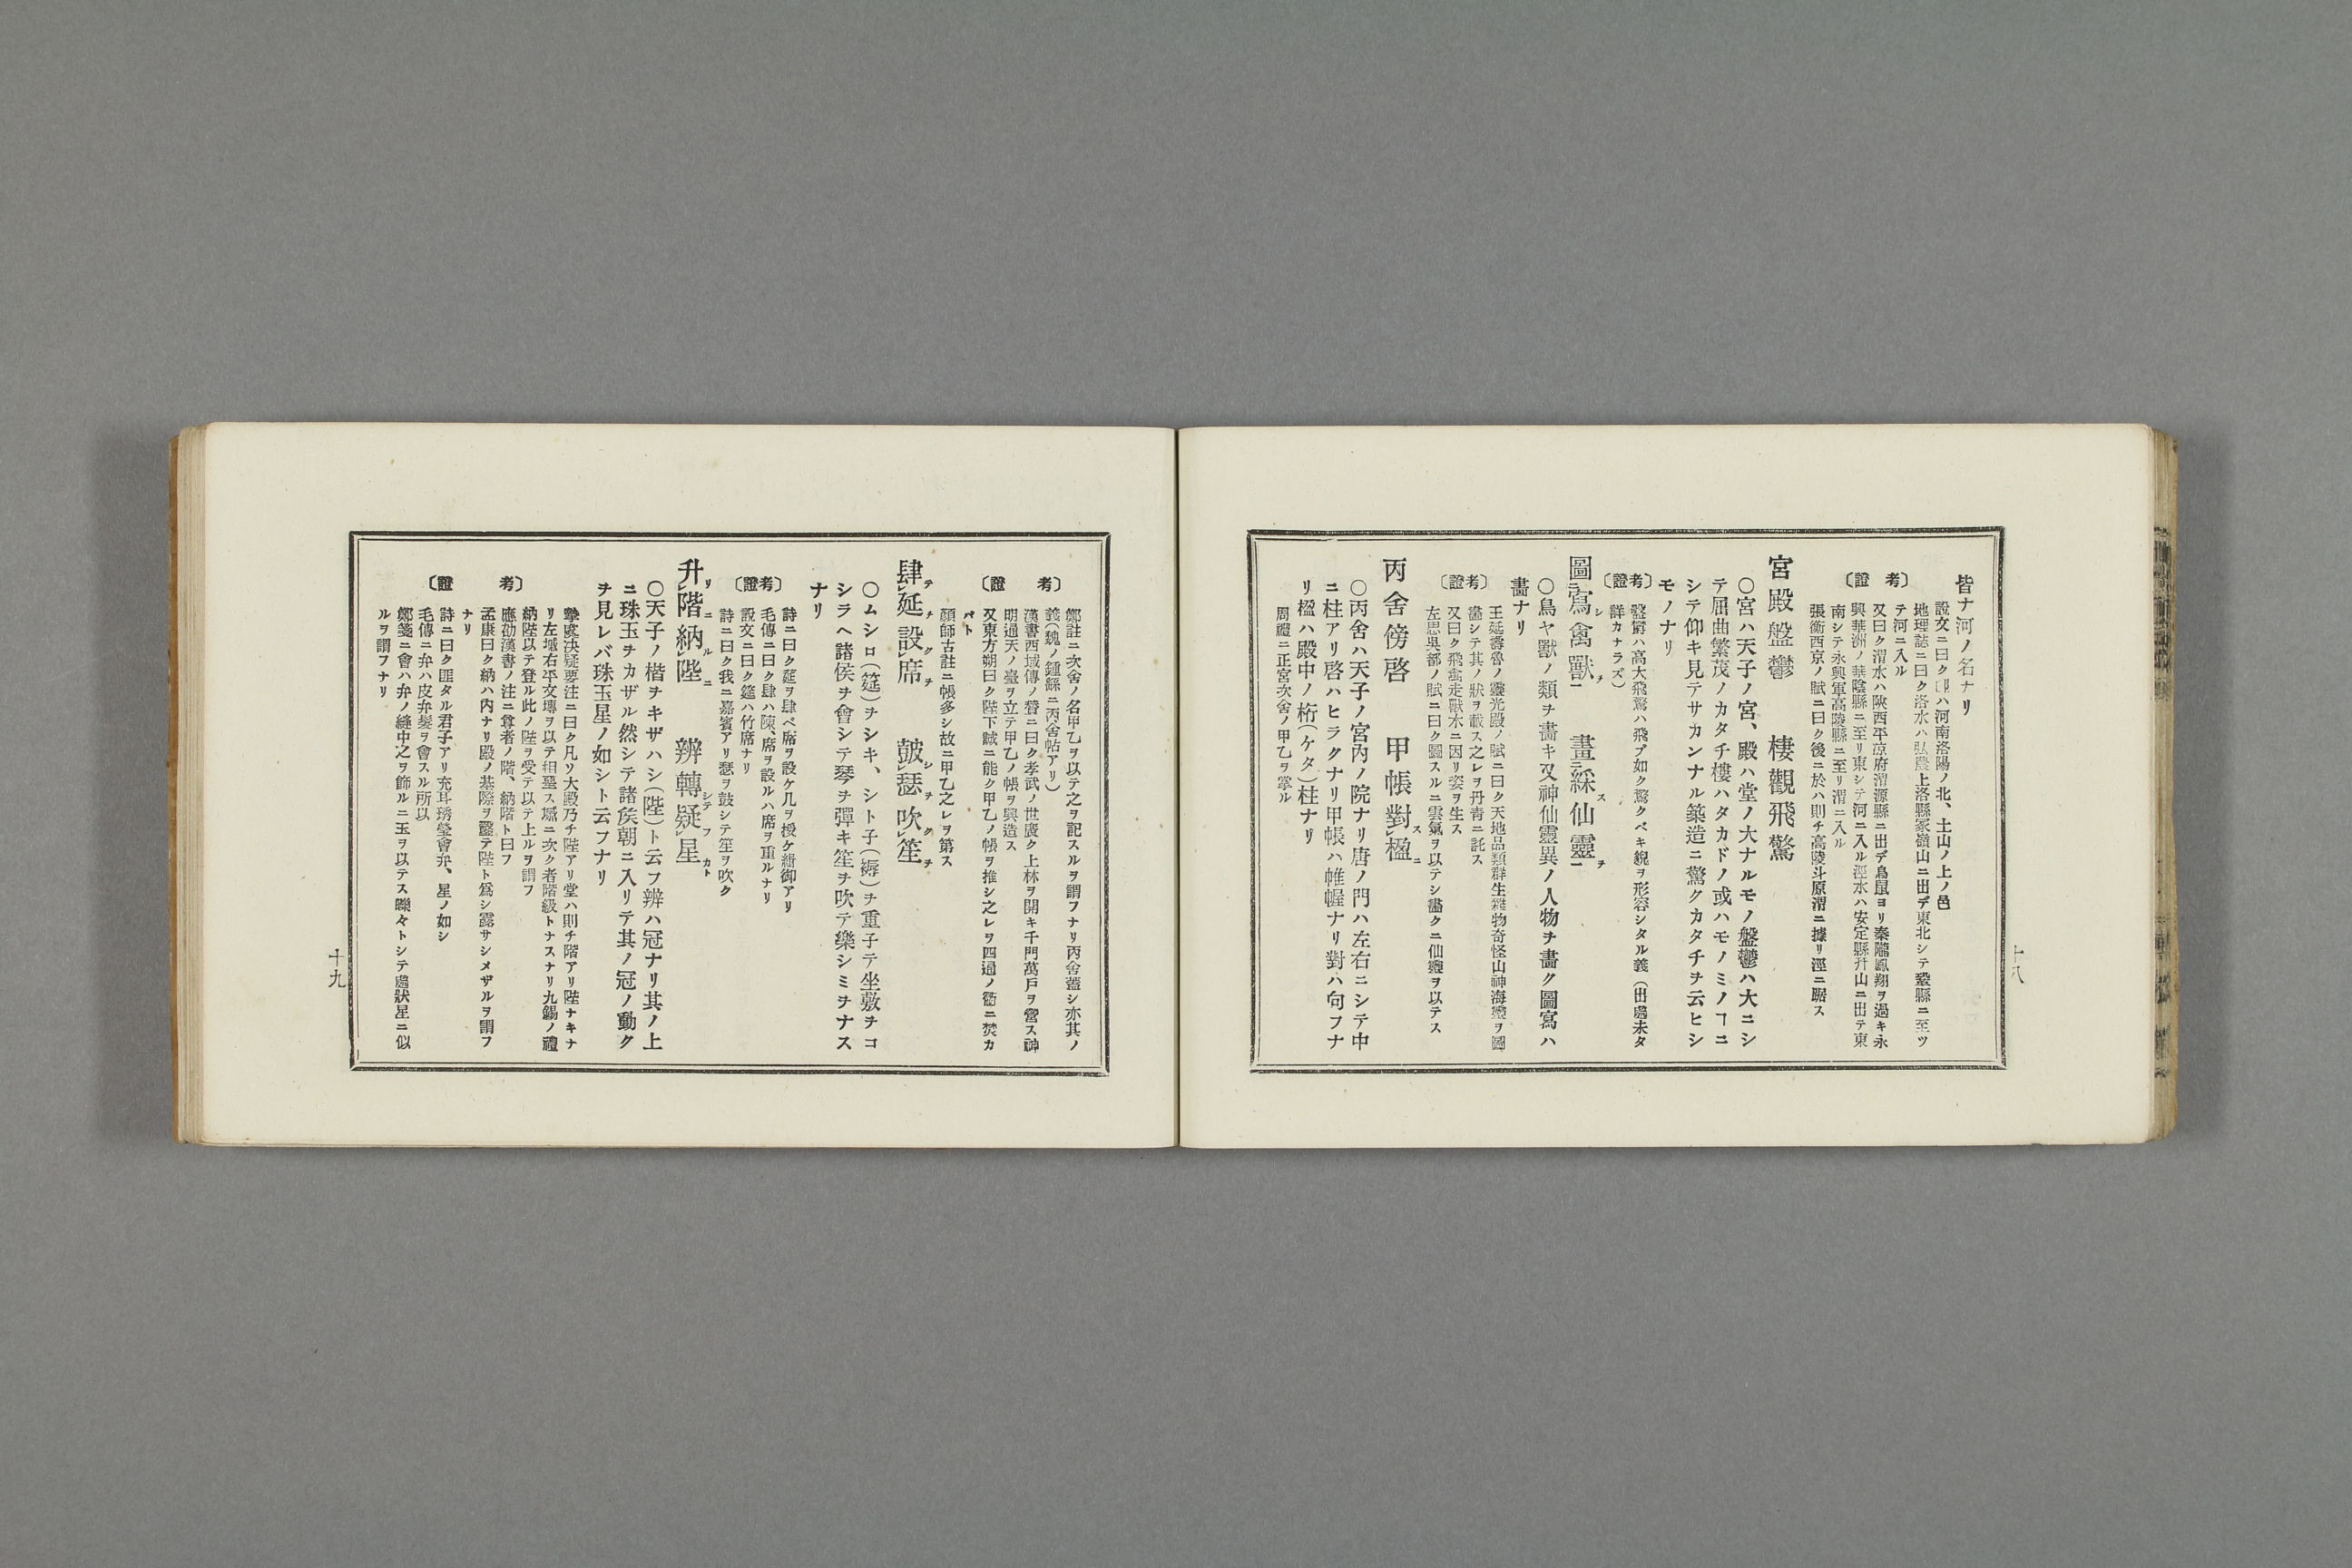 皆ナ河ノ名ナリ
〔考證〕
說文ニ曰ク邙ハ河南洛陽ノ北、土山ノ上ノ邑
地理誌ニ曰ク洛水ハ弘農上洛縣冢嶺山ニ出デ東北シテ鞏縣ニ至ツ
テ河ニ入ル
又曰ク渭水ハ陝西平凉府渭源縣ニ出デ鳥鼠ヨリ秦隴鳳翔ヲ過キ永
興華洲ノ華陰縣ニ至リ東シテ河ニ入ル涇水ハ安定縣幵山ニ出テ東
南シテ永興軍高陵縣ニ至リ渭ニ入ル
張衡西京ノ賦ニ曰ク後ニ於ハ則チ高陵斗原渭ニ據リ涇ニ踞ス
宮殿盤鬱　樓觀飛驚
〇宮ハ天子ノ宮、殿ハ堂ノ大ナルモノ盤鬱ハ大ニシ
テ屈曲繁茂ノカタチ樓ハタカドノ或ハモノミノヿニ
シテ仰キ見テサカンナル築造ニ驚グカタチヲ云ヒシ
モノナリ
〔考證〕
盤鬱ハ高大飛驚ハ飛ブ如ク驚クベキ貌ヲ形容シタル義（出處未タ
詳カナラズ）
圖寫禽獸　畫綵仙靈
〇鳥ヤ獸ノ類ヲ畵キ又神仙靈異ノ人物ヲ畵ク圖寫ハ
畵ナリ
〔考證〕
王延壽魯ノ靈光殿ノ賦ニ曰ク天地品類群生雜物奇怪山神海靈ヲ圖
畵シテ其ノ狀ヲ載ス之レヲ丹青ニ託ス
又曰ク飛禽走獸木ニ因リ姿ヲ生ス
左思吳都ノ賦ニ曰ク圖スルニ雲氣ヲ以テシ畵クニ仙靈ヲ以テス
丙舍傍啓　甲帳對楹
〇丙舍ハ天子ノ宮內ノ院ナリ唐ノ門ハ左右ニシテ中
ニ柱アリ啓ハヒラクナリ甲帳ハ帷幄ナリ對ハ向フナ
リ楹ハ殿中ノ桁（ケタ）柱ナリ
周禮ニ正宮次舍ノ甲乙ヲ掌ル
十八
〔考證〕
鄭註ニ次舍ノ名甲乙ヲ以テ之ヲ記スルヲ謂フナリ丙舍蓋シ亦其ノ
義（魏ノ鍾繇ニ丙舍帖アリ）
漢書西域傳ノ贊ニ曰ク孝武ノ世廣ク上林ヲ開キ千門萬戶ヲ營ス神
明通天ノ臺ヲ立テ甲乙ノ帳ヲ興造ス
又東方朔曰ク陛下誠ニ能ク甲乙ノ帳ヲ推シ之レヲ四通ノ衢ニ焚カ
バト
顏師古註ニ帳多シ故ニ甲乙之レヲ第ス
肆延設席　皷瑟吹笙
〇ムシロ（筵）ヲシキ、シト子（褥）ヲ重子テ坐敷ヲコ
シラヘ諸侯ヲ會シテ琴ヲ彈キ笙ヲ吹テ樂シミヲナス
ナリ
〔考證〕
詩ニ曰ク筵ヲ肆ベ席ヲ設ケ几ヲ授ケ緝御アリ
毛傳ニ曰ク肆ハ陳、席ヲ設ルハ席ヲ重ルナリ
說文ニ曰ク筵ハ竹席ナリ
詩ニ曰ク我ニ嘉賓アリ瑟ヲ鼓シテ笙ヲ吹ク
升階納陛　辨轉疑星
〇天子ノ楷ヲキザハシ（陛）ト云フ辨ハ冠ナリ其ノ上
ニ珠玉ヲカザル然シテ諸侯朝ニ入リテ其ノ冠ノ動ク
ヲ見レバ珠玉星ノ如シト云フナリ
〔考證〕
摯虞决疑要注ニ曰ク凡ソ大殿乃チ陛アリ堂ハ則チ階アリ陛ナキナ
リ左墄右平文塼ヲ以テ相亞ス墄ニ次ク者階級トナスナリ九錫ノ禮
納陛以テ登ル此ノ陛ヲ受テ以テ上ルヲ謂フ
應劭漢書ノ注ニ尊者ノ階、納階ト曰フ
孟康曰ク納ハ內ナリ殿ノ基際ヲ鑿テ陛ト爲シ露サシメザルヲ謂フ
ナリ
〔證
詩ニ曰ク匪タル君子アリ充耳琇瑩會弁、星ノ如シ
毛傳ニ弁ハ皮弁髮ヲ會スル所以
鄭箋ニ會ハ弁ノ縫中之ヲ飾ルニ玉ヲ以テス皪々トシテ處狀星ニ似
ルヲ謂フナリ
十九